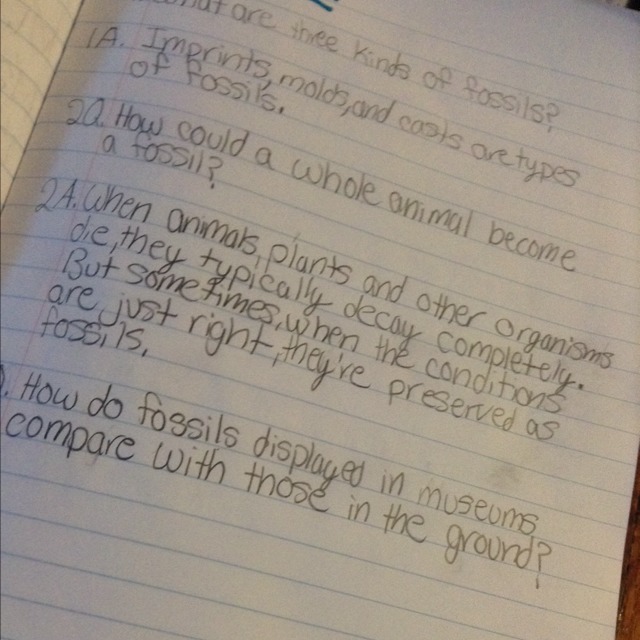 what are three kinds of fossils?
1A. Imprints, molds, and casts are types
of fossils.
2Q. How could a whole animal become
a fossil?
2A. When animals, plants and other organisms
die, they typically decay completely.
But sometimes, when the conditions
are just right, they're preserved as
fossils.
How do fossils displayed in museums
compare with those in the ground?